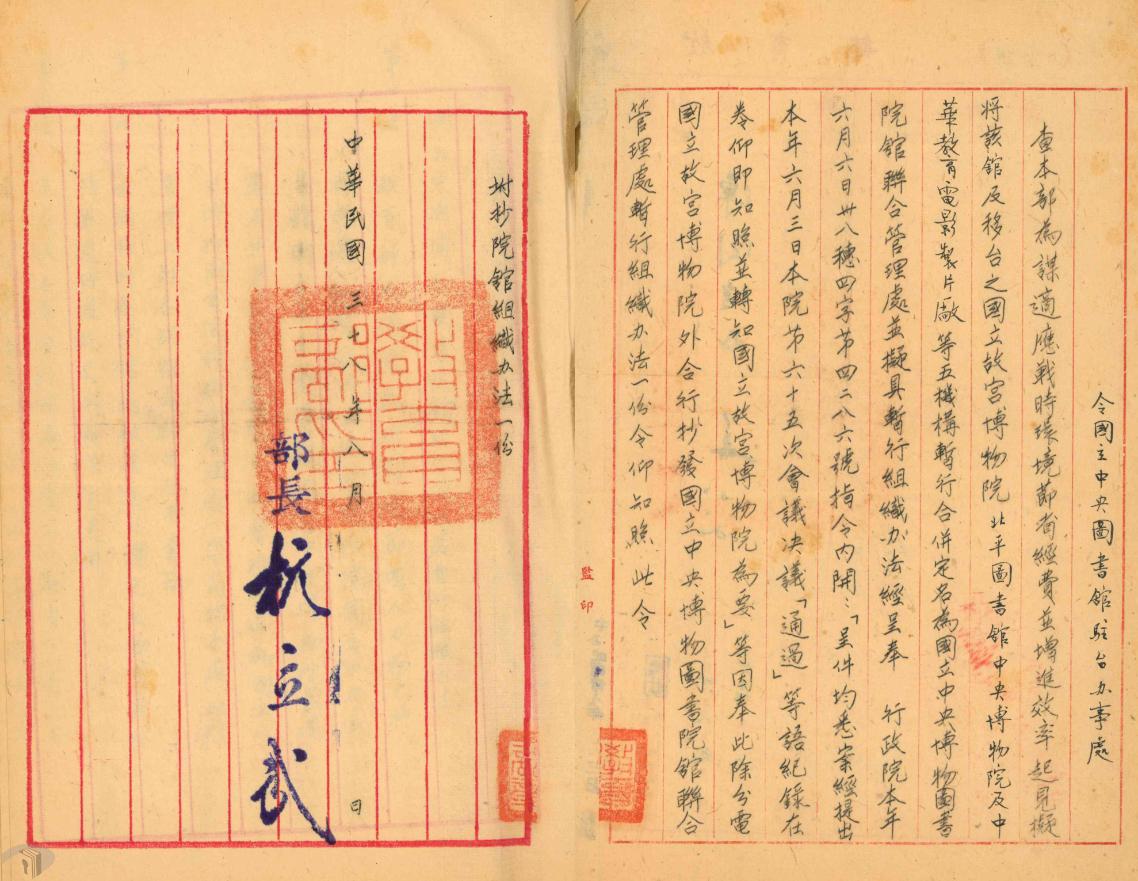 令國立中央圖書館駐台办事處
查本部為謀適應戰時環境節省經費並增進效率起見擬
將該館及移台之國立故宮博物院北平圖書館中央博物院及中
華教育電影製片廠等五機構暫行合併定名為國立中央博物圖書
院館聯合管理處並擬具暫行組織办法經呈奉　行政院本年
六月六日卅八穗四字第四二八六號指令內開：「呈件均悉案經提出
本年六月三日本院第六十五次會議決議「通過」等語紀錄在
卷仰即知照並轉知國立故宮博物院為要」等因奉此除分電
國立故宮博物院外合行抄發國立中央博物圖書院館聯合
管理處暫行組織办法一份令仰知照　此令
監印
坿抄院館組織办法一份
中華民國三十八年八月　日
部長杭立武
教育部印